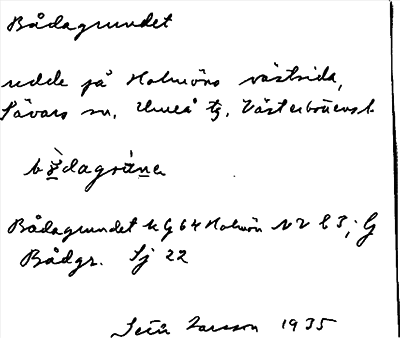 Bådagrundet
redde på Holmöns västsida,
Sävars sn, Umeå tg, Västerbottens l.
Bådagrundet k G 64 Holmön NV l 3; G
Bådgr. Sj 22
Larsson 1935